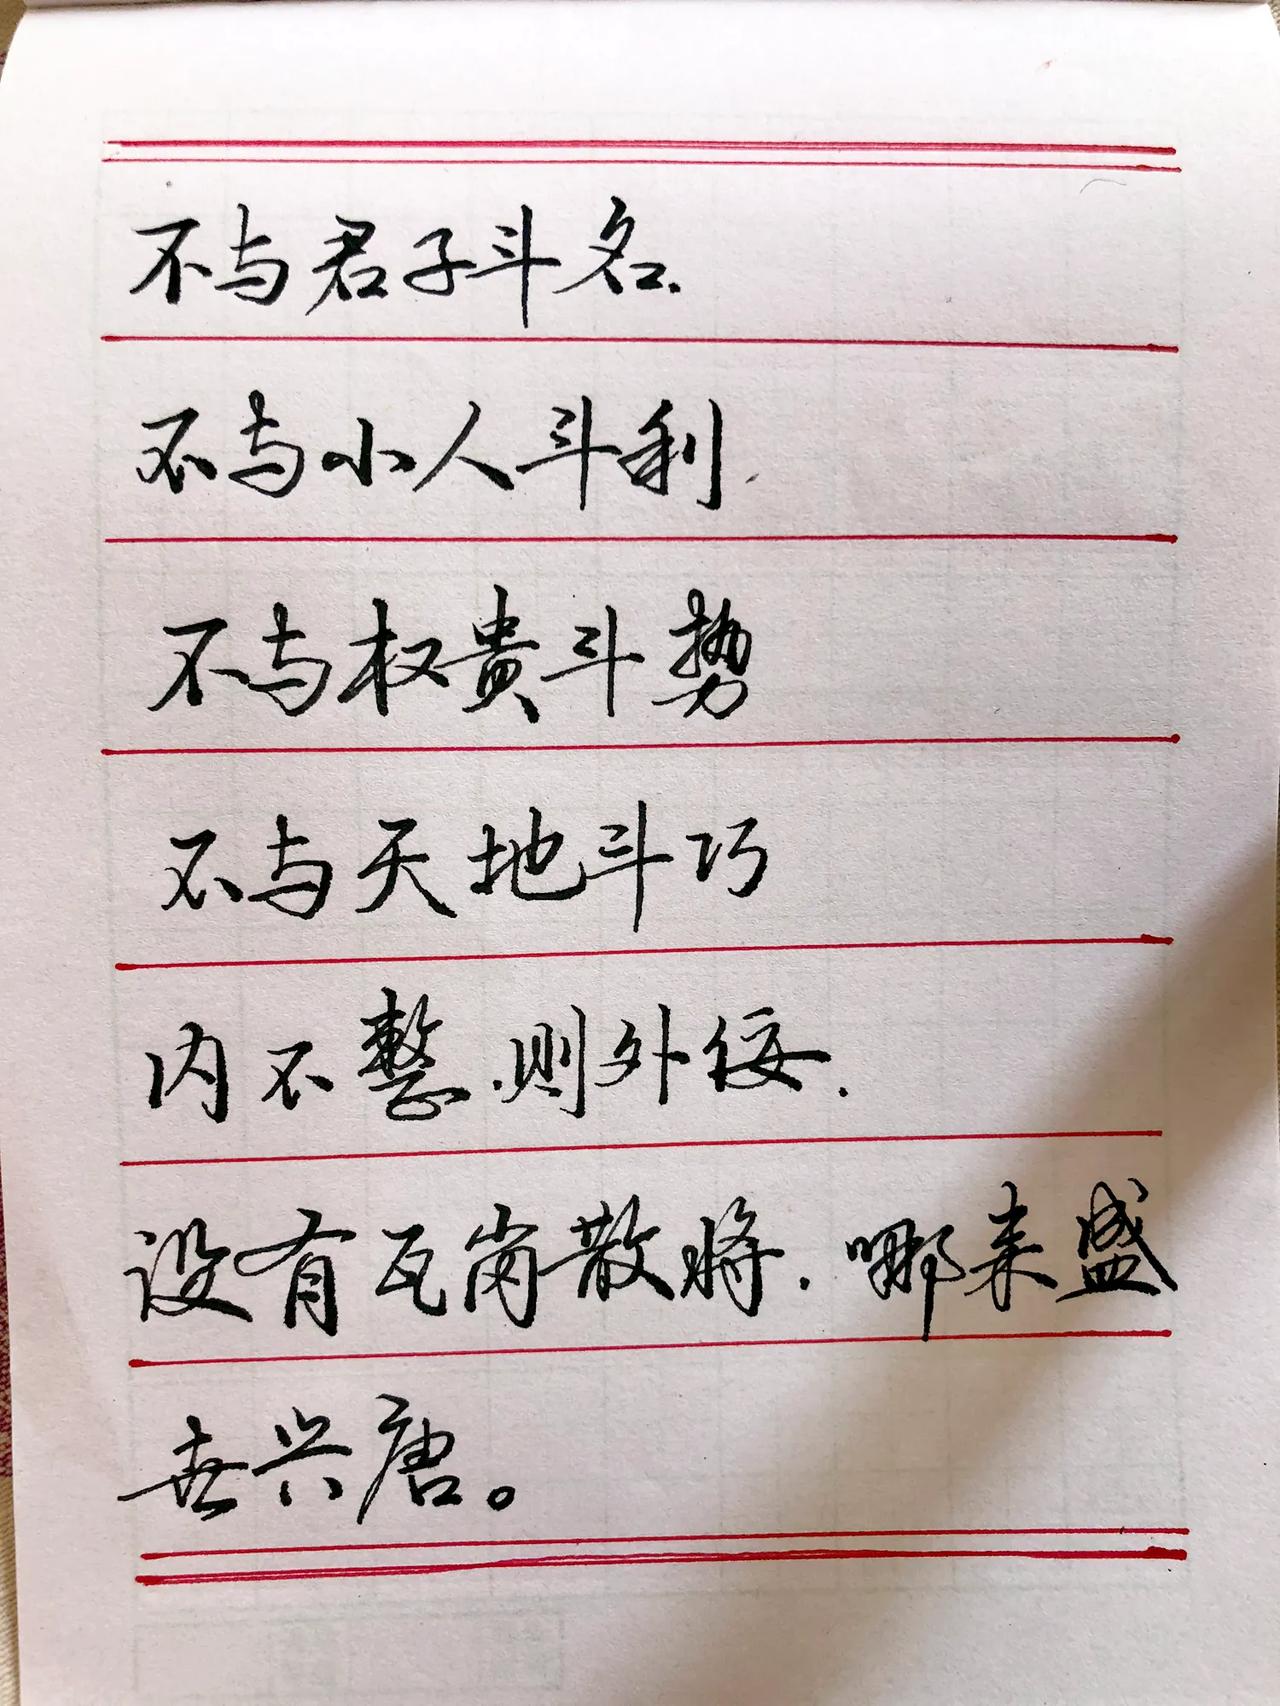 不与君子斗名.
不与小人斗利.
不与权贵斗势
不与天地斗巧
内不整.则外侵.
没有瓦岗散将.哪来盛
世兴唐。